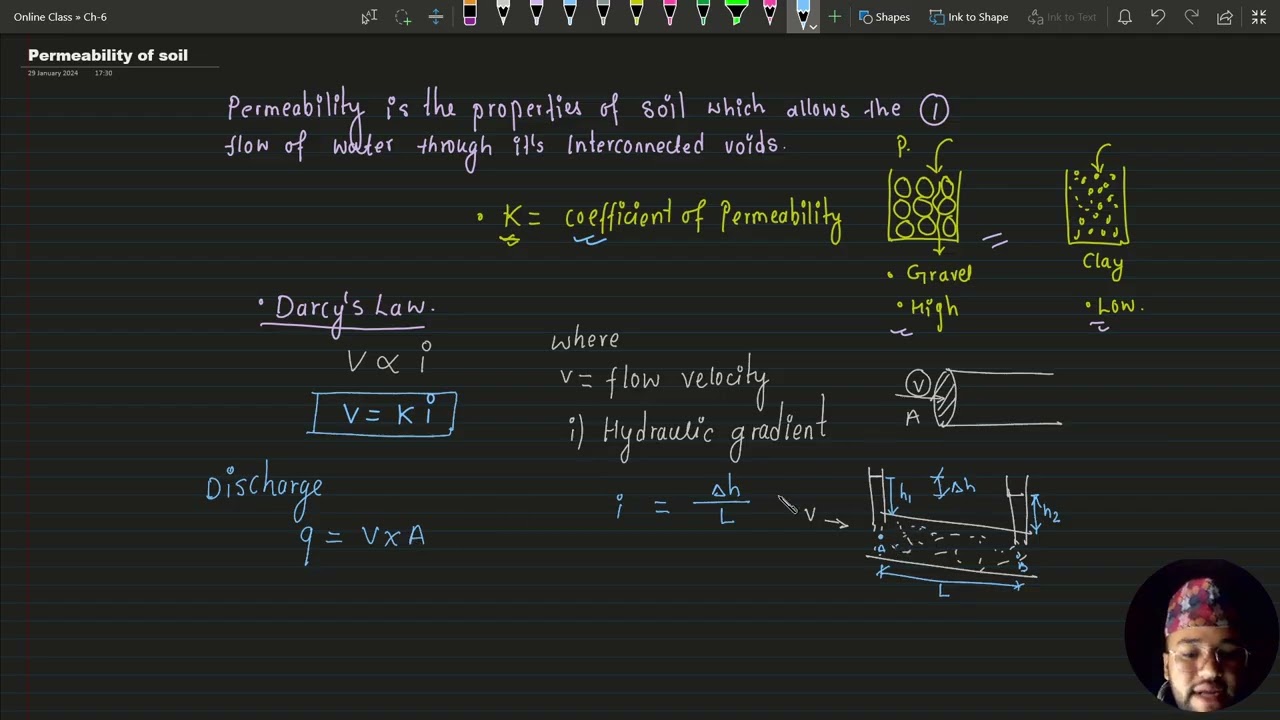 Online Class » Ch-6
Shapes
Ink to Shape
Ink to Text
Permeability of soil
29 January 2024 17:30
Permeability is the properties of soil which allows the ①
flow of water through it's interconnected voids.
P.
• K = coefficient of Permeability
• Gravel
Clay
• High
• Low.
=
• Darcy's Law.
V ∝ i
V = K i
where
v = flow velocity
i) Hydraulic gradient
V
A
Discharge
q = V x A
i = Δh / L
V →
h₁
Δh
h₂
A
B
L